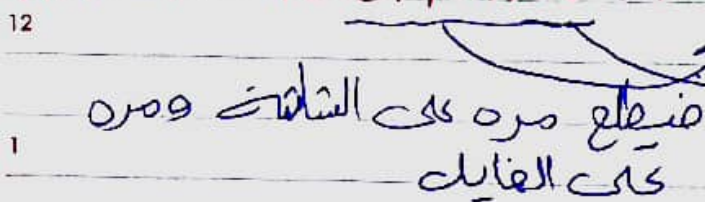 12
فنطلع مره على الشاشة ومره
1
على الفايل